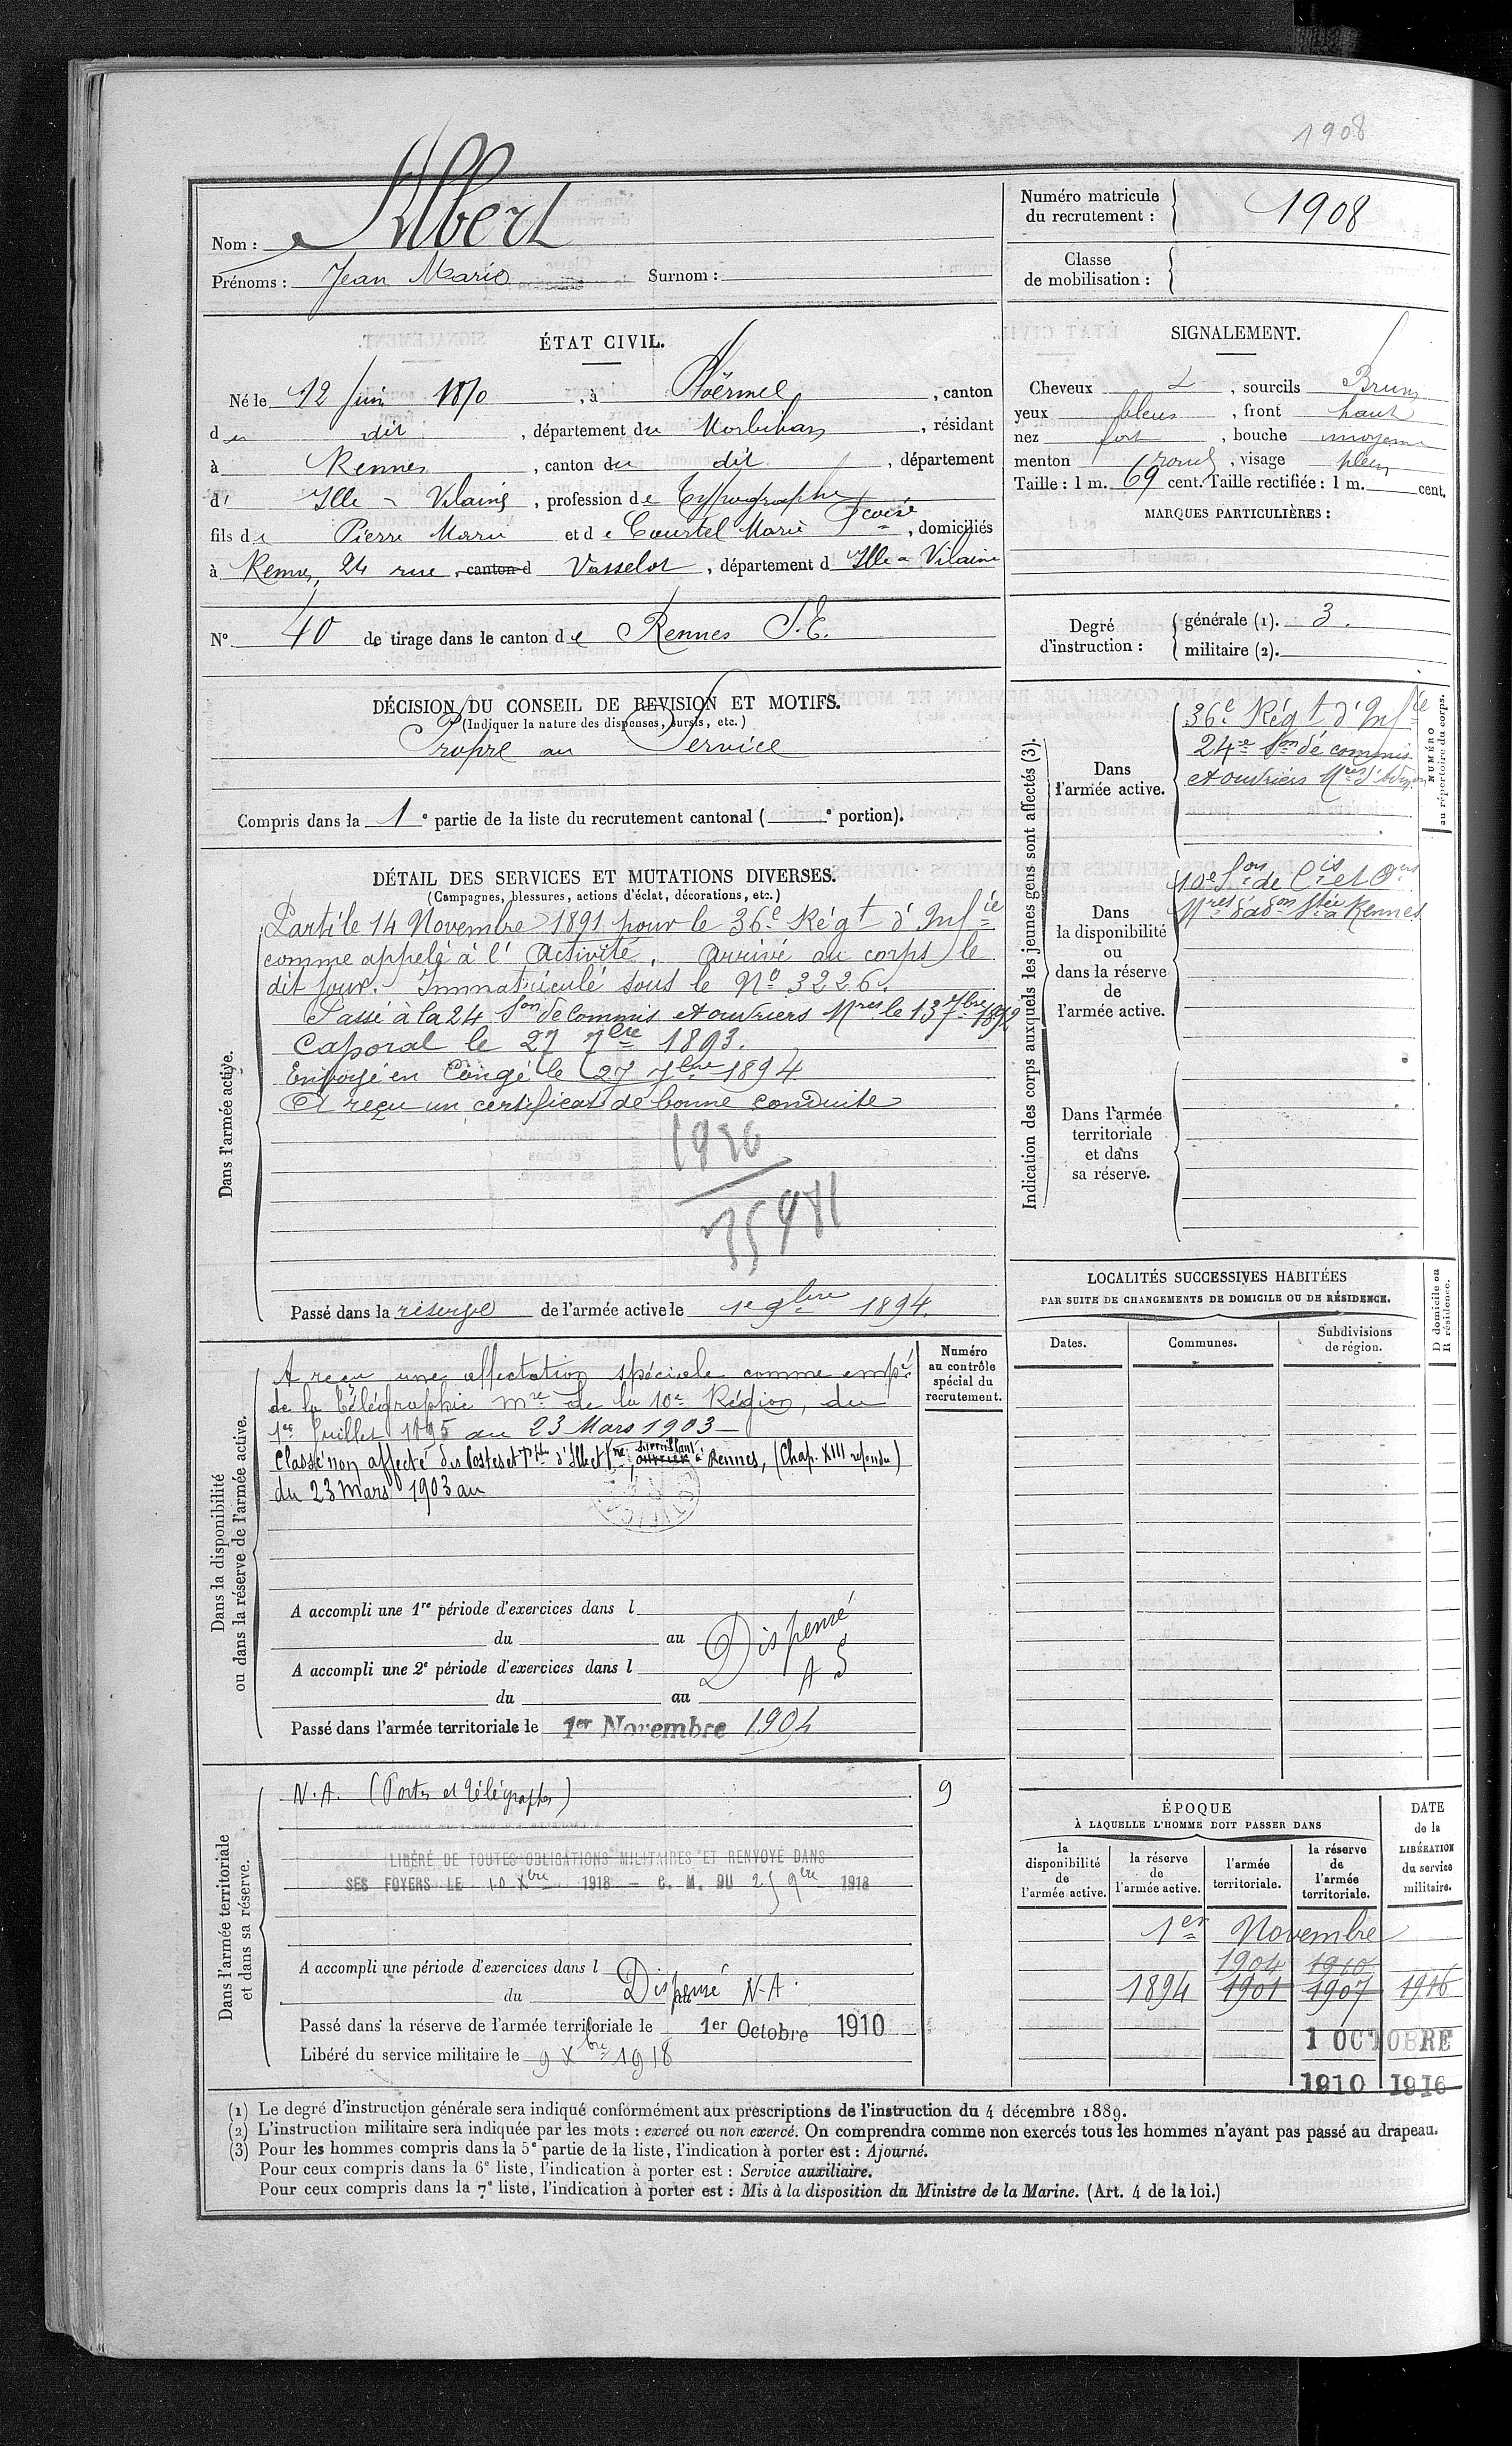 1908
Nom : Albert
Prénoms : Jean Marie Surnom :
Numéro matricule du recrutement : 1908
Classe de mobilisation :
ÉTAT CIVIL.
Né le 12 Juin 1870, à Ploërmel, canton
du dit, département du Morbihan, résidant
à Rennes, canton du dit, département
d' Ille & Vilaine, profession de Typographe
fils de Pierre Marie et de Courtel Marie Fcoise, domiciliés
à Rennes, 24 rue, canton d Vasselot, département d Ille & Vilaine
N° 40 de tirage dans le canton de Rennes S.E.
SIGNALEMENT.
Cheveux &, sourcils Bruns
yeux bleus, front haut
nez fort, bouche moyenne
menton rond, visage plein
Taille : 1 m. 69 cent. Taille rectifiée : 1 m. cent.
MARQUES PARTICULIÈRES :
Degré d'instruction :
générale (1). 3.
militaire (2).
DÉCISION DU CONSEIL DE REVISION ET MOTIFS.
(Indiquer la nature des dispenses, sursis, etc.)
Propre au Service
Compris dans la 1e partie de la liste du recrutement cantonal ( e portion).
DÉTAIL DES SERVICES ET MUTATIONS DIVERSES.
(Campagnes, blessures, actions d'éclat, décorations, etc.)
Dans l'armée active.
Parti le 14 Novembre 1891 pour le 36e Régt d'Infie
comme appelé à l'Activité. Arrivé au corps le
dit jour. Immatriculé sous le No 3226.
Passé à la 24 Son de Commis et ouvriers Mres le 13 7bre 1892
Caporal le 27 7bre 1893.
Envoyé en Congé le 27 7bre 1894
Et reçu un certificat de bonne conduite
Passé dans la réserve de l'armée active le 1e 9bre 1894.
Indication des corps auxquels les jeunes gens sont affectés (3).
NUMÉRO au répertoire du corps.
Dans l'armée active.
36e Régt d'Infie
24e Son de commis
et ouvriers Mres d'Admon
Dans la disponibilité ou dans la réserve de l'armée active.
10e Son de Cis et Ors
Mres d'adon Stée à Rennes
Dans l'armée territoriale et dans sa réserve.
LOCALITÉS SUCCESSIVES HABITÉES
PAR SUITE DE CHANGEMENTS DE DOMICILE OU DE RÉSIDENCE.
Dates. Communes. Subdivisions de région.
D domicile ou R résidence.
Dans la disponibilité ou dans la réserve de l'armée active.
Numéro au contrôle spécial du recrutement.
A reçu une affectation spéciale comme empé
de la Télégraphie mre de la 10e Région, du
1er Juillet 1895 au 23 Mars 1903
Classé non affecté des Postes et d'Ille et Vne, surveillant à Rennes, (Chap. XIII refondu)
du 23 Mars 1903 au
A accompli une 1re période d'exercices dans l
du au
Dispensé
A accompli une 2e période d'exercices dans l
A S
du au
Passé dans l'armée territoriale le 1er Novembre 1904
Dans l'armée territoriale et dans sa réserve.
N.A. (Postes et Télégraphes)
9
LIBÉRÉ DE TOUTES OBLIGATIONS MILITAIRES ET RENVOYÉ DANS
SES FOYERS LE 10 Xbre 1918 - C. M. DU 25 9bre 1918
A accompli une période d'exercices dans l
du au Dispensé N-A.
Passé dans la réserve de l'armée territoriale le 1er Octobre 1910
Libéré du service militaire le 9 Xbre 1918
ÉPOQUE
À LAQUELLE L'HOMME DOIT PASSER DANS
la disponibilité de l'armée active.
la réserve de l'armée active.
l'armée territoriale.
la réserve de l'armée territoriale.
DATE de la LIBÉRATION du service militaire.
1er Novembre
1904 1910
1894 1901 1907 1916
1 OCTOBRE
1910 1916
(1) Le degré d'instruction générale sera indiqué conformément aux prescriptions de l'instruction du 4 décembre 1889.
(2) L'instruction militaire sera indiquée par les mots : exercé ou non exercé. On comprendra comme non exercés tous les hommes n'ayant pas passé au drapeau.
(3) Pour les hommes compris dans la 5e partie de la liste, l'indication à porter est : Ajourné.
Pour ceux compris dans la 6e liste, l'indication à porter est : Service auxiliaire.
Pour ceux compris dans la 7e liste, l'indication à porter est : Mis à la disposition du Ministre de la Marine. (Art. 4 de la loi.)